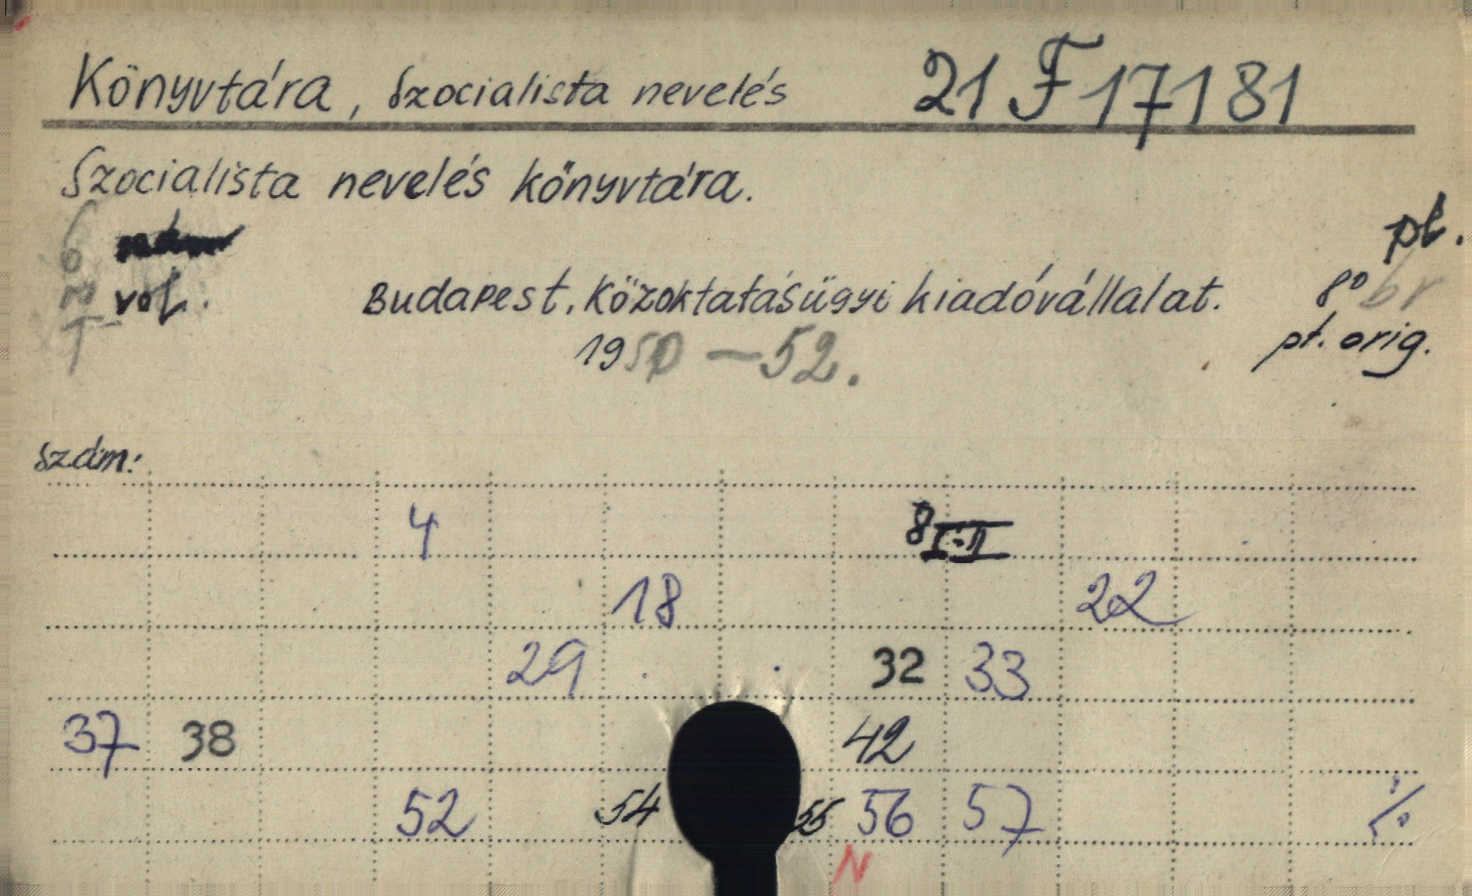 Könyvtára, Szocialista nevelés 21 F 17181
Szocialista nevelés könyvtára.
pl.
vol. Budapest, Közoktatásügyi kiadóvállalat. 8° br
1950-52. pt. orig.
szám:
4 8 I-II
18 22
29 32 33
37 38 42
52 54 55 56 57 ./.
N